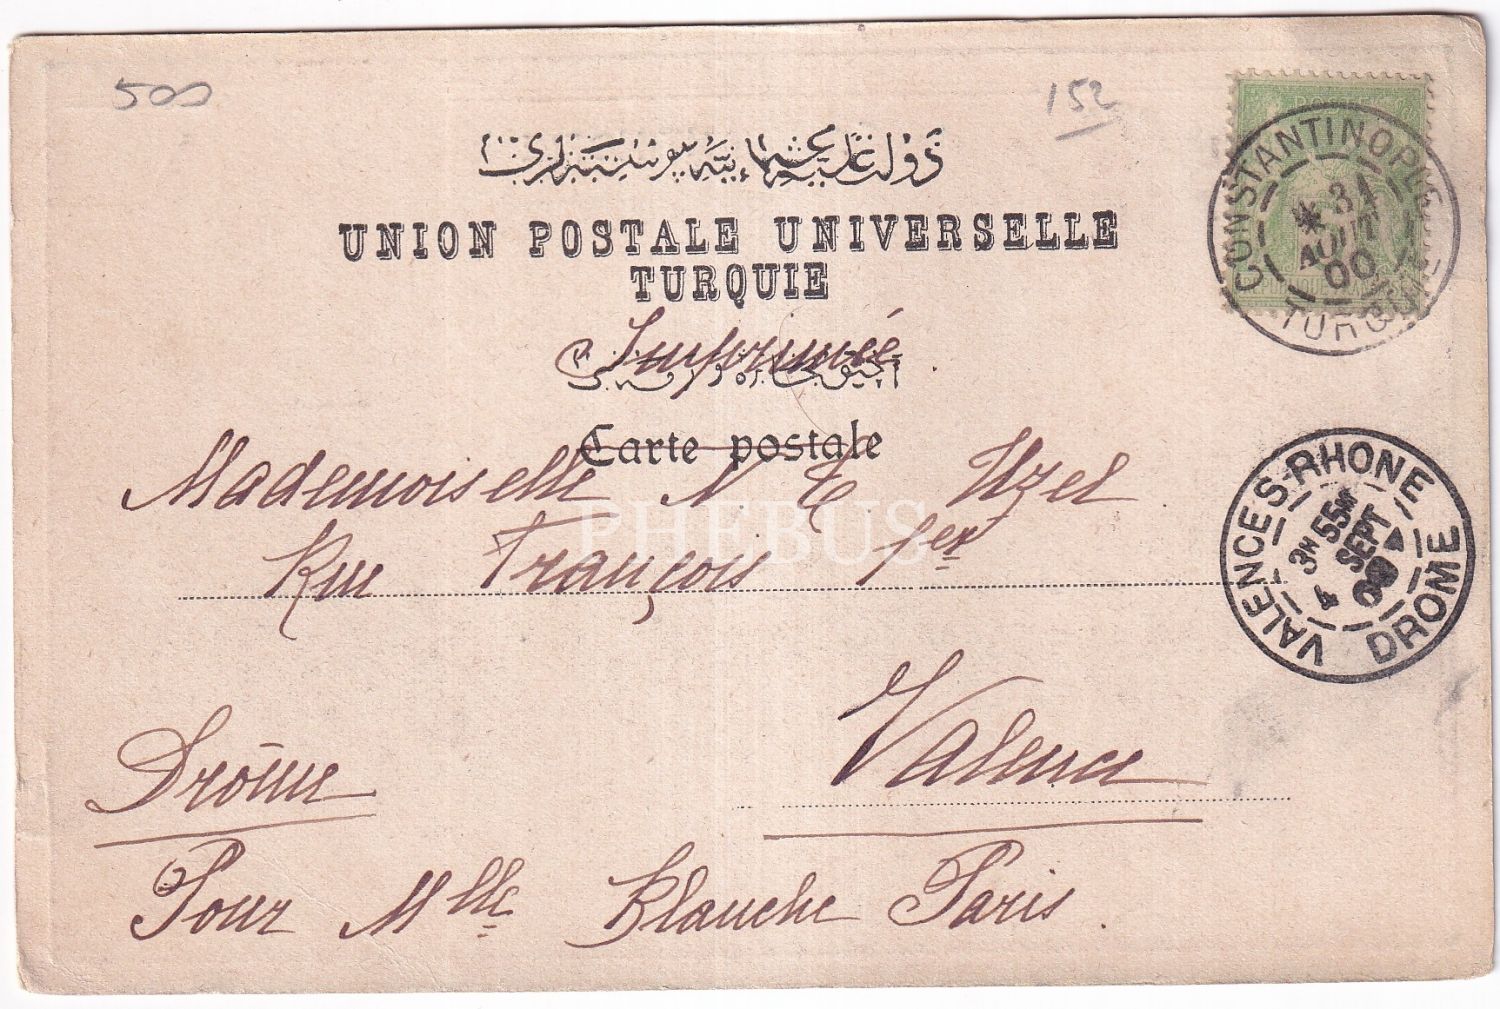 500
152
دولت علیّه عثمانیّه پوسته‌لری
UNION POSTALE UNIVERSELLE
TURQUIE
Imprimée
Carte postale
Mademoiselle N C Uzel
Rue François 1er
Valence
Drôme
Pour Mlle Blanche Paris.
CONSTANTINOPLE
* 31
AOUT
00
TURQUIE
VALENCE S-RHONE
3M 55M
4 SEPT
00
DROME
PHEBUS